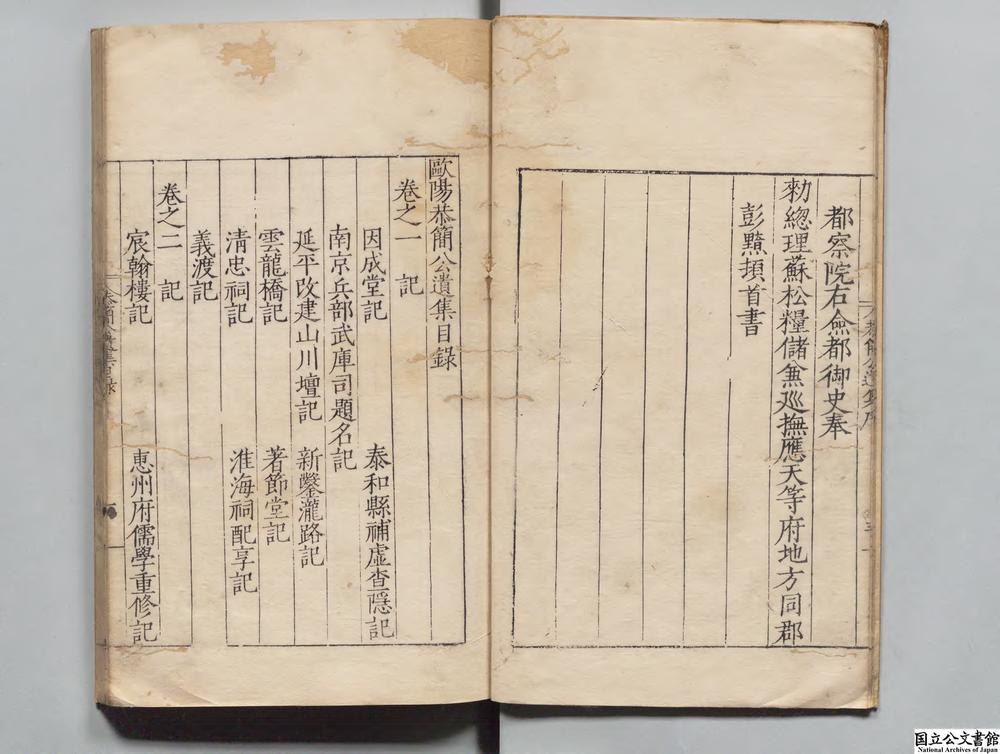 都察院右僉都御史奉
勑總理蘇松糧儲兼廵撫應天等府地方同郡
彭黯頓首書
歐陽恭簡公遺集目錄
卷之一 記
因成堂記 泰和縣補虛查隱記
南京兵部武庫司題名記
延平改建山川壇記 新鑿瀧路記
雲龍橋記 著節堂記
清忠祠記 淮海祠配享記
義渡記
卷之二 記
宸翰樓記 惠州府儒學重修記
国立公文書館
National Archives of Japan